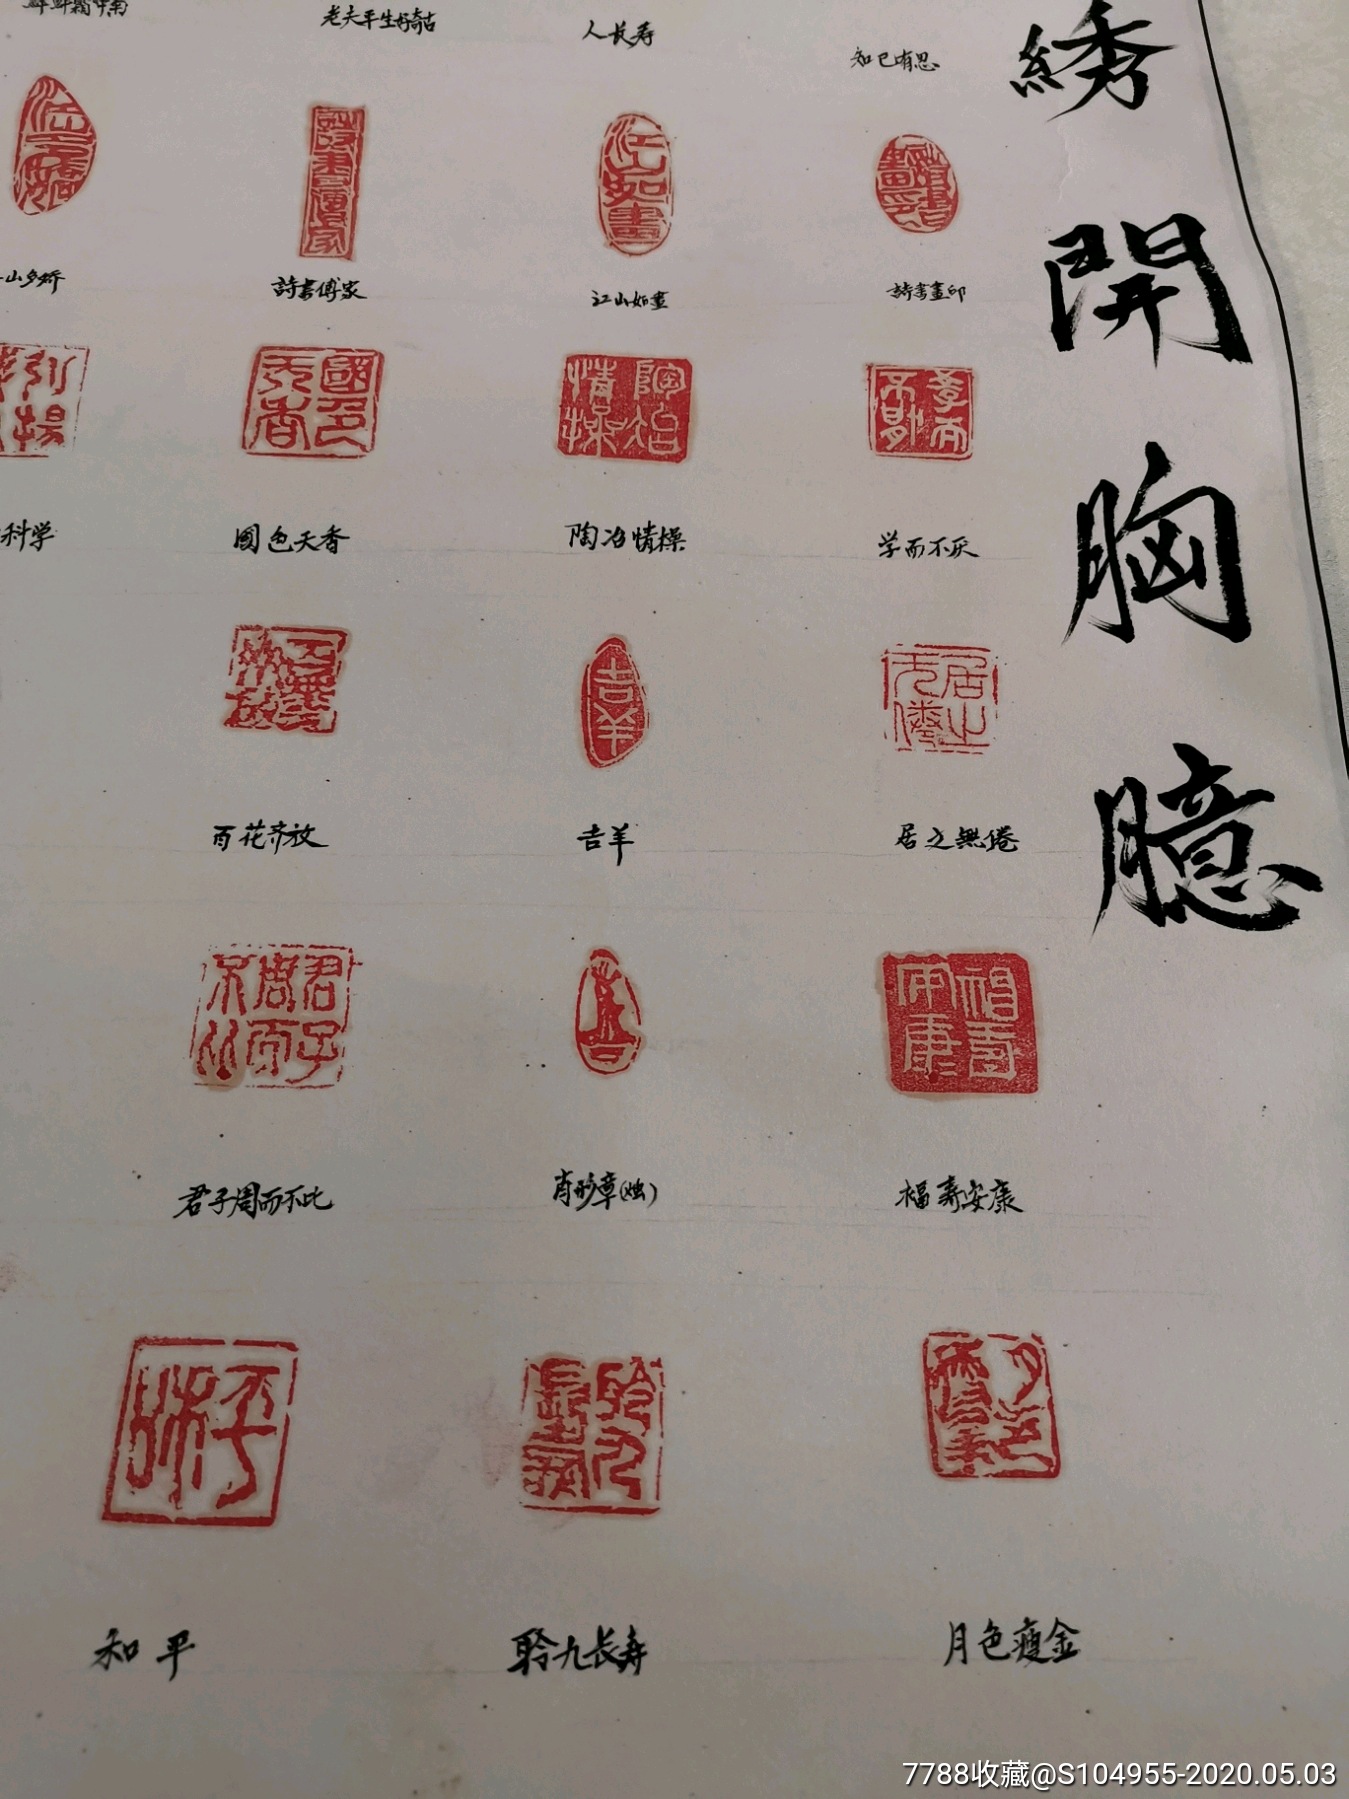 老夫平生好奇古
人長寿
知己有恩
山多娇
詩書傳家
江山如畫
詩書畫印
科学
國色天香
陶冶情操
学而不厌
百花齐放
吉羊
居之無倦
君子周而不比
肖形章(烛)
福寿安康
和平
聆九长寿
月色瘦金
綉開胸臆
7788收藏@S104955-2020.05.03